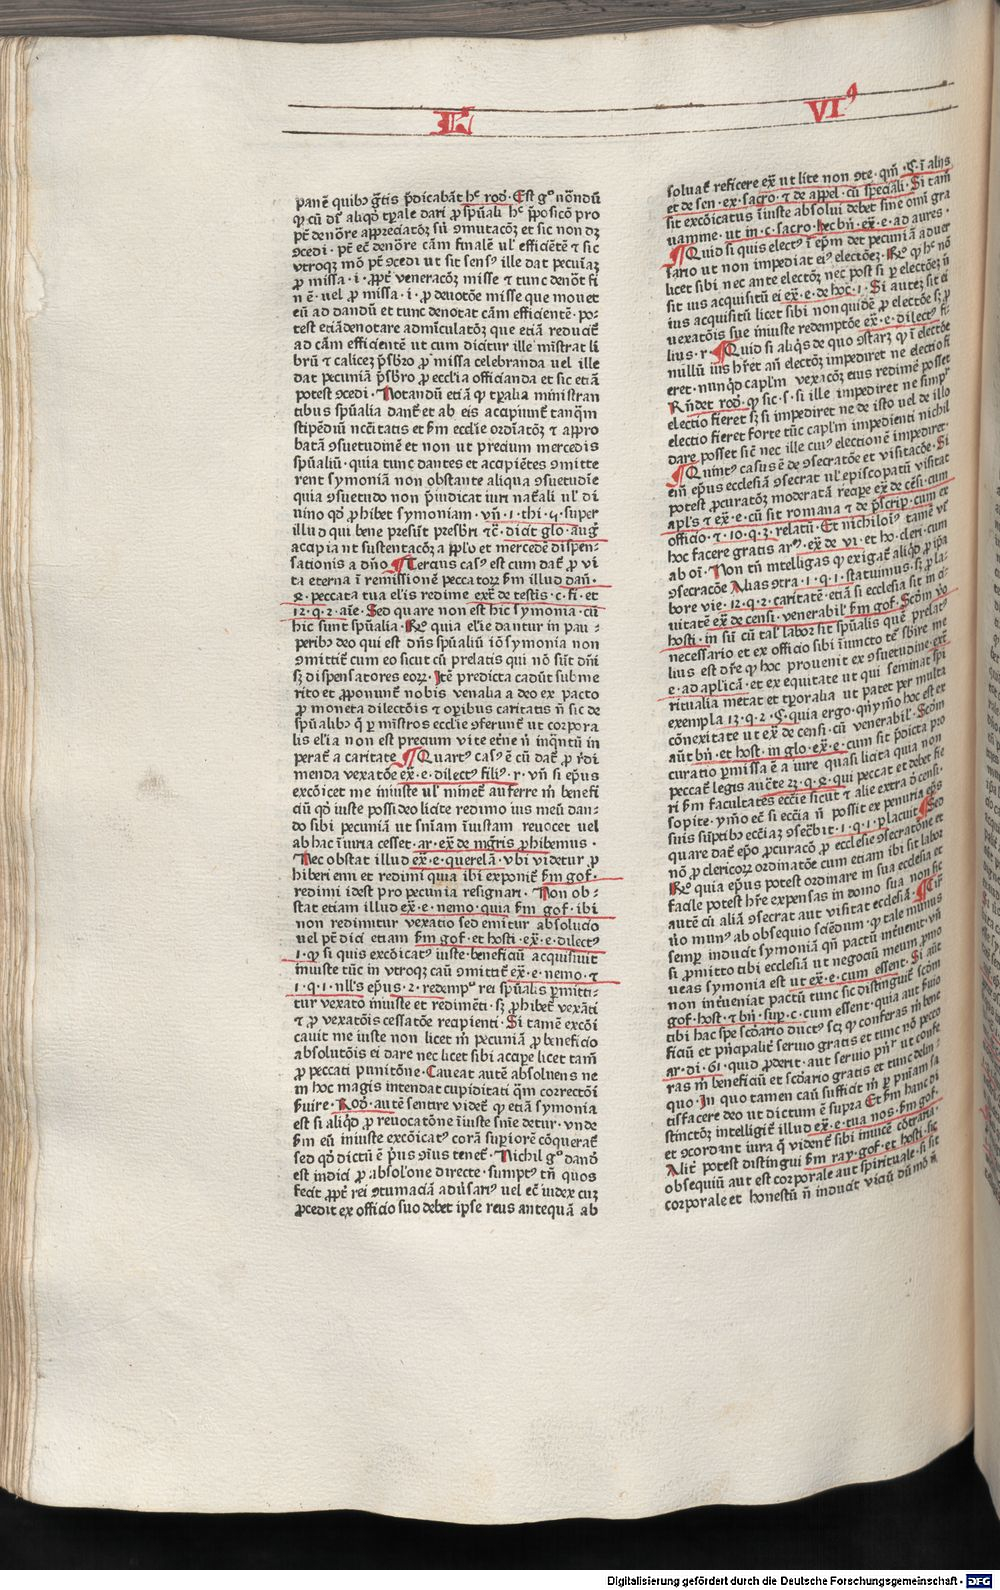 L VI⁹
panē quibꝰ gr̄tis p̄dicabāt hᶜ rod̄. Est gᵒ nōndū
ꝙ cū dꝛ̄ aliqō tp̄ale dari ꝓ spūali hᶜ p̄posicō pro
pt̄ denōre apᵽreciatōꝫ siū ꝯmutacōꝫ et sic non dꝫ
ꝯcedi. pt̄ eē denōre cām finalē ul̓ efficiētē ⁊ sic
vtroqꝫ mō pt̄ ꝯcedi ut sit sensꝰ ille dat pecuīaꝫ
ꝓ missa. i. ꝓpt̄ veneracōꝫ misse ⁊ tunc denōt fi
n ē. vel ꝓ missa. i. ꝓ deuotōe misse que mouet
eū ad dandū et tunc denotat cām efficientē. po-
test etiā denotare admīculatōꝫ que etiā reducit̄
ad cām efficientē ut cum dicitur ille mīstrat li
brū ⁊ caliceꝫ p̄sbr̄o ꝓ missa celebranda uel ille
dat pecuniā p̄sbr̄o ꝓ eccl̓ia officianda et sic etiā
potest ꝯcedi. Notandū etiā ꝙ tp̄ralia ministran
tibus spūalia dant̄ et ab eis accipiunt̄ tanq̄m
stipēdiū nccītatis et ẜm ecclie ordīatōꝫ ⁊ appro
batā ꝯsuetudinē et non ut precium mercedis
spūaliū. quia tunc dantes et accipiētes ꝯmitte
rent symoniā non obstante aliqua ꝯsuetudīe
quia ꝯsuetudo non p̄iudicat iuri nat̄ali ul̓ di
uino qđ ꝓhibet symoniam. vn̄. 1. thi. 5. super
illud qui bene presūt presbr̄i ⁊c̄. dicit glo. auḡ
accipiant sustentacōꝫ a pp̄l̓o et mercedē dispen-
sationis a dn̄o ¶ Tercius casꝰ est cum dat̄ ꝓ vi
ta eterna ī remissionē peccatorꝫ ẜm illud dan̄.
4. peccata tua el̓is redime ext̄ de testis. c. fi. et
12. q. 2. aīe. Sed quare non est hic symonia. cū
hic sunt spūalia. Rᵒ quia el̓ie dantur in pau-
peribꝰ deo qui est dn̄s spūaliū iō symonia non
ꝯmittit̄ cum eo sicut cū prelatis qui nō sūt dn̄i
sꝫ dispensatores eorꝫ. Itē predicta cadūt sub me
rito et ꝓponunt̄ nobis venalia a deo ex pacto
ꝓ moneta dilectōis ⁊ oꝑibus caritatis n̄ sic de
spūalibꝰ q̄ ꝑ mīstros ecclie ꝯferunt̄ ut corpora
lis el̓ia non est precium vite et̄ne n̄ inq̄ntū in
perat̄ a caritate ¶ Quartꝰ casꝰ ē cū dat̄ ꝓ r̄di
menda vexatōe ex̄. e. dilectꝰ filiꝰ. r. vn̄ si ep̄us
excōicet me iniuste ul̓ minet̄ auferre m̄ benefi
ciū qđ iuste possideo licite redimo ius meū dan-
do sibi pecuniā ut snīam īiustam reuocet uel
ab hac īiuria cesset. ar. ex̄ de mgr̄is ꝓhibemus.
Nec obstat illud ex̄. e. querelā. vbi videtur ꝓ
hiberi emi et redimi quia ibi exponit̄ ẜm gof.
redimi idest pro pecunia resignari. Non ob-
stat etiam illud ex̄. e. nemo. quia ẜm gof. ibi
non redimitur vexatio sed emitur absolucio
uel pt̄ dici etiam ẜm gof. et hosti. ex̄. e. dilectꝰ
1. ꝙ si quis excōicatꝰ iuste. beneficiū acquisiuit
iniuste tūc in vtroqꝫ casū ꝯmittit̄ ex̄. e. nemo. ⁊
1. q. 1. nll̓s ep̄us. 2. redempᵒ rei spūalis ꝑmitti-
tur vexato iniuste et redimēti. sꝫ ꝓhibet̄ vexāti
⁊ ꝓ vexatōis cessatōe recipienti. Si tamē excōi
cauit me iuste non licet m̄ pecuniā ꝓ beneficio
absolutōis ei dare nec licet sibi accipe licet tam̄
ꝓ peccati punitōne. Caueat autē absoluens ne
in hoc magis intendat cupiditati q̄m correctōi
ẜuire. Rod̄. autē sentire videt̄ ꝙ etiā symonia
est si aliqđ ꝓ reuocatōne īiuste snīe detur. vnde
ẜm eū iniuste excōicatꝰ corā superiorē cōquerat̄
sed qđ dictū ē p̄us ꝯīus tenet̄. Nichil gᵒ danđ
est iudici ꝓ absolōne directe. sumptꝰ tn̄ quos
fecit ꝓpt̄ rei ꝯtumaciā aduersariꝰ uel et̄ iudex cuꝫ
ꝓcedit ex officio suo debet ipse reus antequā ab
soluat̄ reficere ex̄ ut lite non ꝯte. qm̄. §. ī aliis
et de sen. ex. sacro. ⁊ de appel. cū speciali. Si tam̄
sit excōicatus īiuste absolui debet sine omi gra
uamine. ut in. c. sacro. hec bn̄. ex̄. e. ad aures.
¶ Quid si quis electꝰ ī ep̄m det pecuniā aduer
sario ut non impediat eiꝰ electōeꝫ. Rᵒ ꝙ hᶜ nō
licet sibi nec ante electōꝫ nec post si ꝑ electōeꝫ n̄
sit ius acquisitū ei ex̄. e. de hoc. 1. Si auteꝫ sit ei
ius acquisitū licet sibi non quidē ꝓ electōe sꝫ ꝓ
vexatōis sue iniuste redemptōe ex̄. e. dilectꝰ fi-
lius. r. ¶ Quid si aliq̄s de quo ꝯstarꝫ ꝙ ī electōe
nullū ius hr̄et an̄ electōꝫ impediret ne electio fi
eret. nunqđ caplm̄ vexacōꝫ eius redimē posset
Rn̄det rod̄. ꝙ sic. s. si ille impediret ne simpꝛ
electio fieret sꝫ si impediret ne de isto uel de illo
electio fieret forte tūc caplm̄ impedienti nichil
dare posset sic̄ nec ille cuiꝰ electionē impediret.
¶ Quintꝰ casus ē de ꝯsecratōe et visitacōe. Si
em̄ ep̄us ecclesiā ꝯsecrat ul̓ episcopatū visitat
potest ꝓcuratōꝫ moderatā recipe ex̄ de cēsi. cum
apl̓s ⁊ ex̄. e. cū sit romana ⁊ de p̄scrip. cum ex
officio. ⁊. 10. q. 3. relatū. Et nichiloīꝰ tamē vꝛ̄
hoc facere gratis arᵒ. ex̄ de vi. et ho. cleri. cum
ab oī. Non tn̄ intelligas ꝙ exigat̄ aliqđ ꝓ ip̄a
ꝯsecracōe Alias ꝯtra. 1. q. 1. statuimus. sꝫ ꝓ la-
bore vie. 12. q. 2. caritatē. etiā si ecclesia sit in ci-
uitate ex̄ de censi. venerabil̓ ẜm gof. Scdm̄ vᵒ
hosti. in sū cū tal̓ labor sit spūalis quē prelatꝰ
necessario et ex officio sibi īiuncto tē sbire me
lius est dr̄e ꝙ hoc prouenit ex ꝯsuetudine. ext̄
e. ad apl̓icā. et ex equitate ut qui seminat spi
ritualia metat et tp̄oralia ut patet per multa
exempla 13. q. 2. §. quia ergo. qn̄ymo hoc est ex
cōnexitate ut ex̄ de censi. cū venerabil̓. Scdm̄
aūt bn̄. et host. in glo. ex̄. e. cum sit p̄dicta pro
curatio ꝑmissa ē a iure quasi licita quia non
peccat̄ legis auc̄te 23. q. 4. qui peccat et debet fie
ri ẜm facultates eccīe sicut ⁊ alie extra ꝯ̄censi.
sopite. ymo et̄ si eccīa n̄ possit ex penuria ep̄s
suis sūptibꝰ eccīaꝫ ꝯsec̄bit. 1. q. 1. placuit ¶ Sed
quare dat̄ ep̄o ꝓcuracō ꝓ ecclesie ꝯsecratōne et
nō ꝓ clericorꝫ ordinatōe cum etiam ibi sit labor
Rᵒ quia ep̄us potest ordinare in sua ecclesia et
facile potest hr̄e expensas in domo sua non sic
autē cū aliā ꝯsecrat aut visitat ecclesiā. ¶ Tir̄
ūo munꝰ ab obsequio sciēdum. ꝙ tale munus
semꝑ inducit symoniā qn̄ pactū intuenit. vn̄
si ꝓmitto tibi ecclesiā ut negociū meum ꝓmo
ueas symonia est ut ex̄. e. cum essent. Si aūt
non intueniat pactū tunc sic distinguit̄ scdm̄
gof. host. ⁊ bn̄. sup̄. c. cum essent. quia aut ẜuio
tibi hac spe scdario ductꝰ scꝫ ꝙ conferas m̄ bene
ficiū et p̄ncipalit̄ seruio gratis et tunc nō pecco
ar. di. 61. quid ꝓderit. aut seruio pn̄ꝛ ut confe
ras m̄ beneficiū et scdario gratis et tunc delin-
quo. In quo tamen casū sufficit m̄ ꝑ pn̄iam sa
tisfacere deo ut dictum ē supra Et ẜm hanc di
stinctōꝫ intelligit̄ illud ex̄. e. tua nos. ẜm gof.
et ꝯcordant iura q̄ vident̄ sibi inuicē cōtraria.
Alit̄ potest distingui ẜm ray. gof. et hosti. sic
obsequiū aut est corporale aut spirituale. si sit
corporale et honestū n̄ inducit viciū dūmō n̄
Digitalisierung gefördert durch die Deutsche Forschungsgemeinschaft - DFG